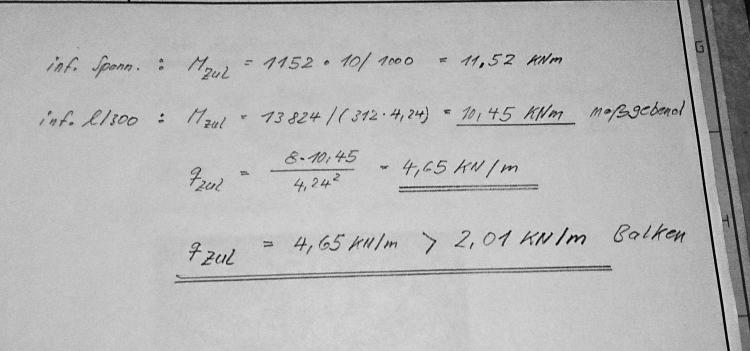 inf. Spann. : Mzul = 1152 • 10/1000 = 11,52 KNm
inf. l/300 : Mzul = 13824/(312·4,24) = 10,45 KNm maßgebend
qzul = 8·10,45 / 4,24² = 4,65 KN/m
qzul = 4,65 KN/m > 2,01 KN/m Balken
G
I